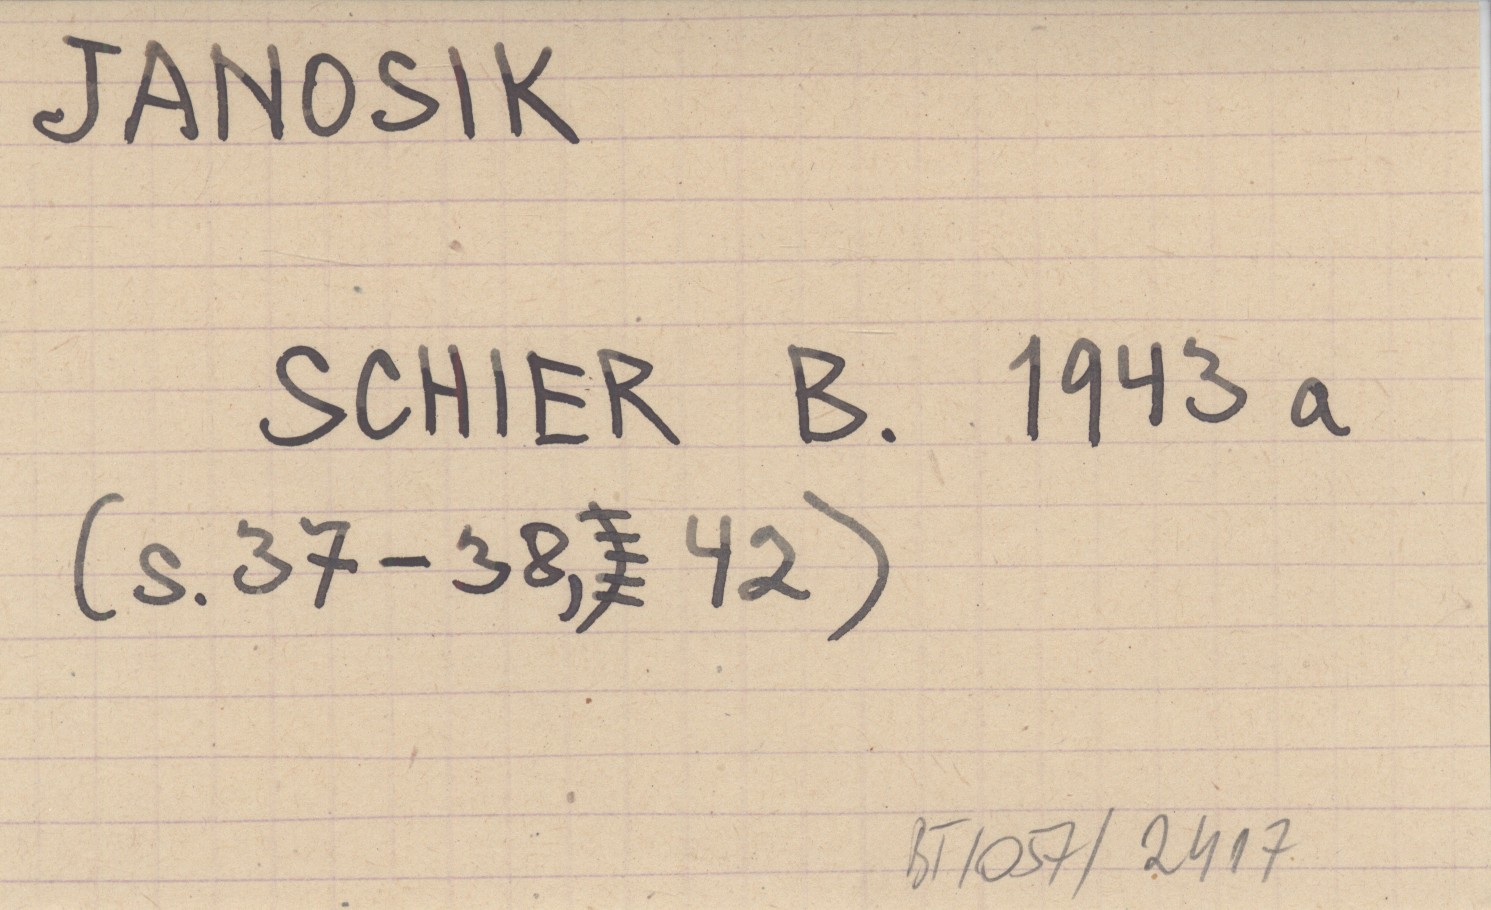 JANOSIK
SCHIER B. 1943 a
(s. 37-38, 42)
BT/057/ 2417